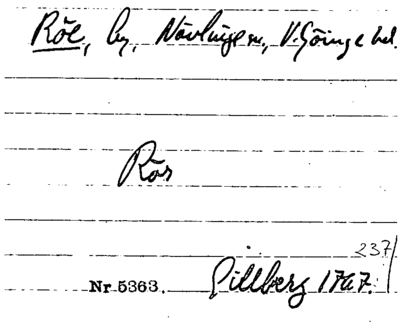 Röe, by, Nävlinge sn., V. Göinge hd.
Rös
237
Nr 5363. Gillberg 1767.